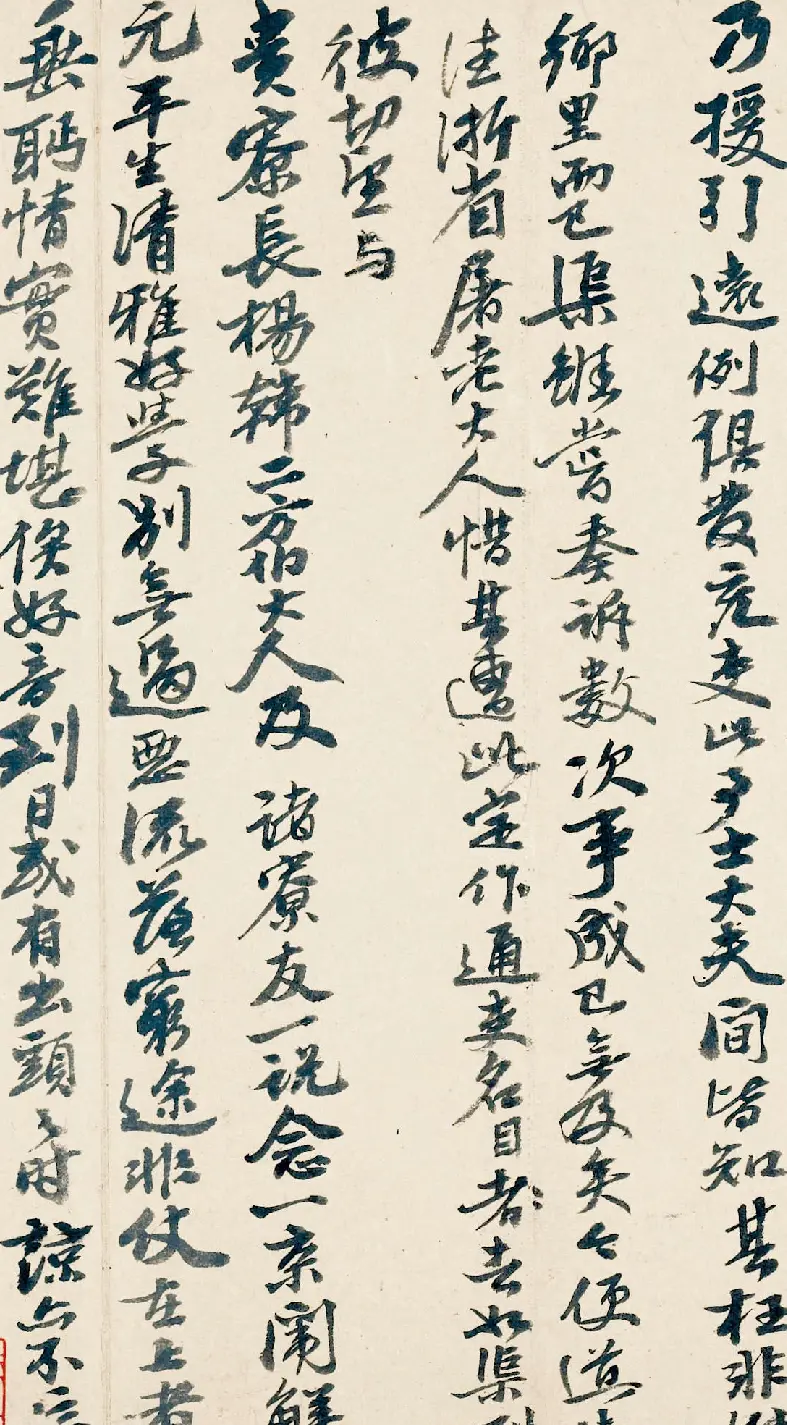 乃援引遠例俱發充吏此事士大夫間皆知其枉非
鄉里而已渠雖嘗奏訴數次事成已無及矣今便道
往浙省屠老大人惜其遭此定作通吏名目者去如渠到
彼切望与
貴寮長楊韓二府大人及諸寮友一說念一京闈解
元平生清雅好學別無過惡流落窮途非仗在上者
無聊情實難堪俟好音到日或有出頭之時諒亦不忘